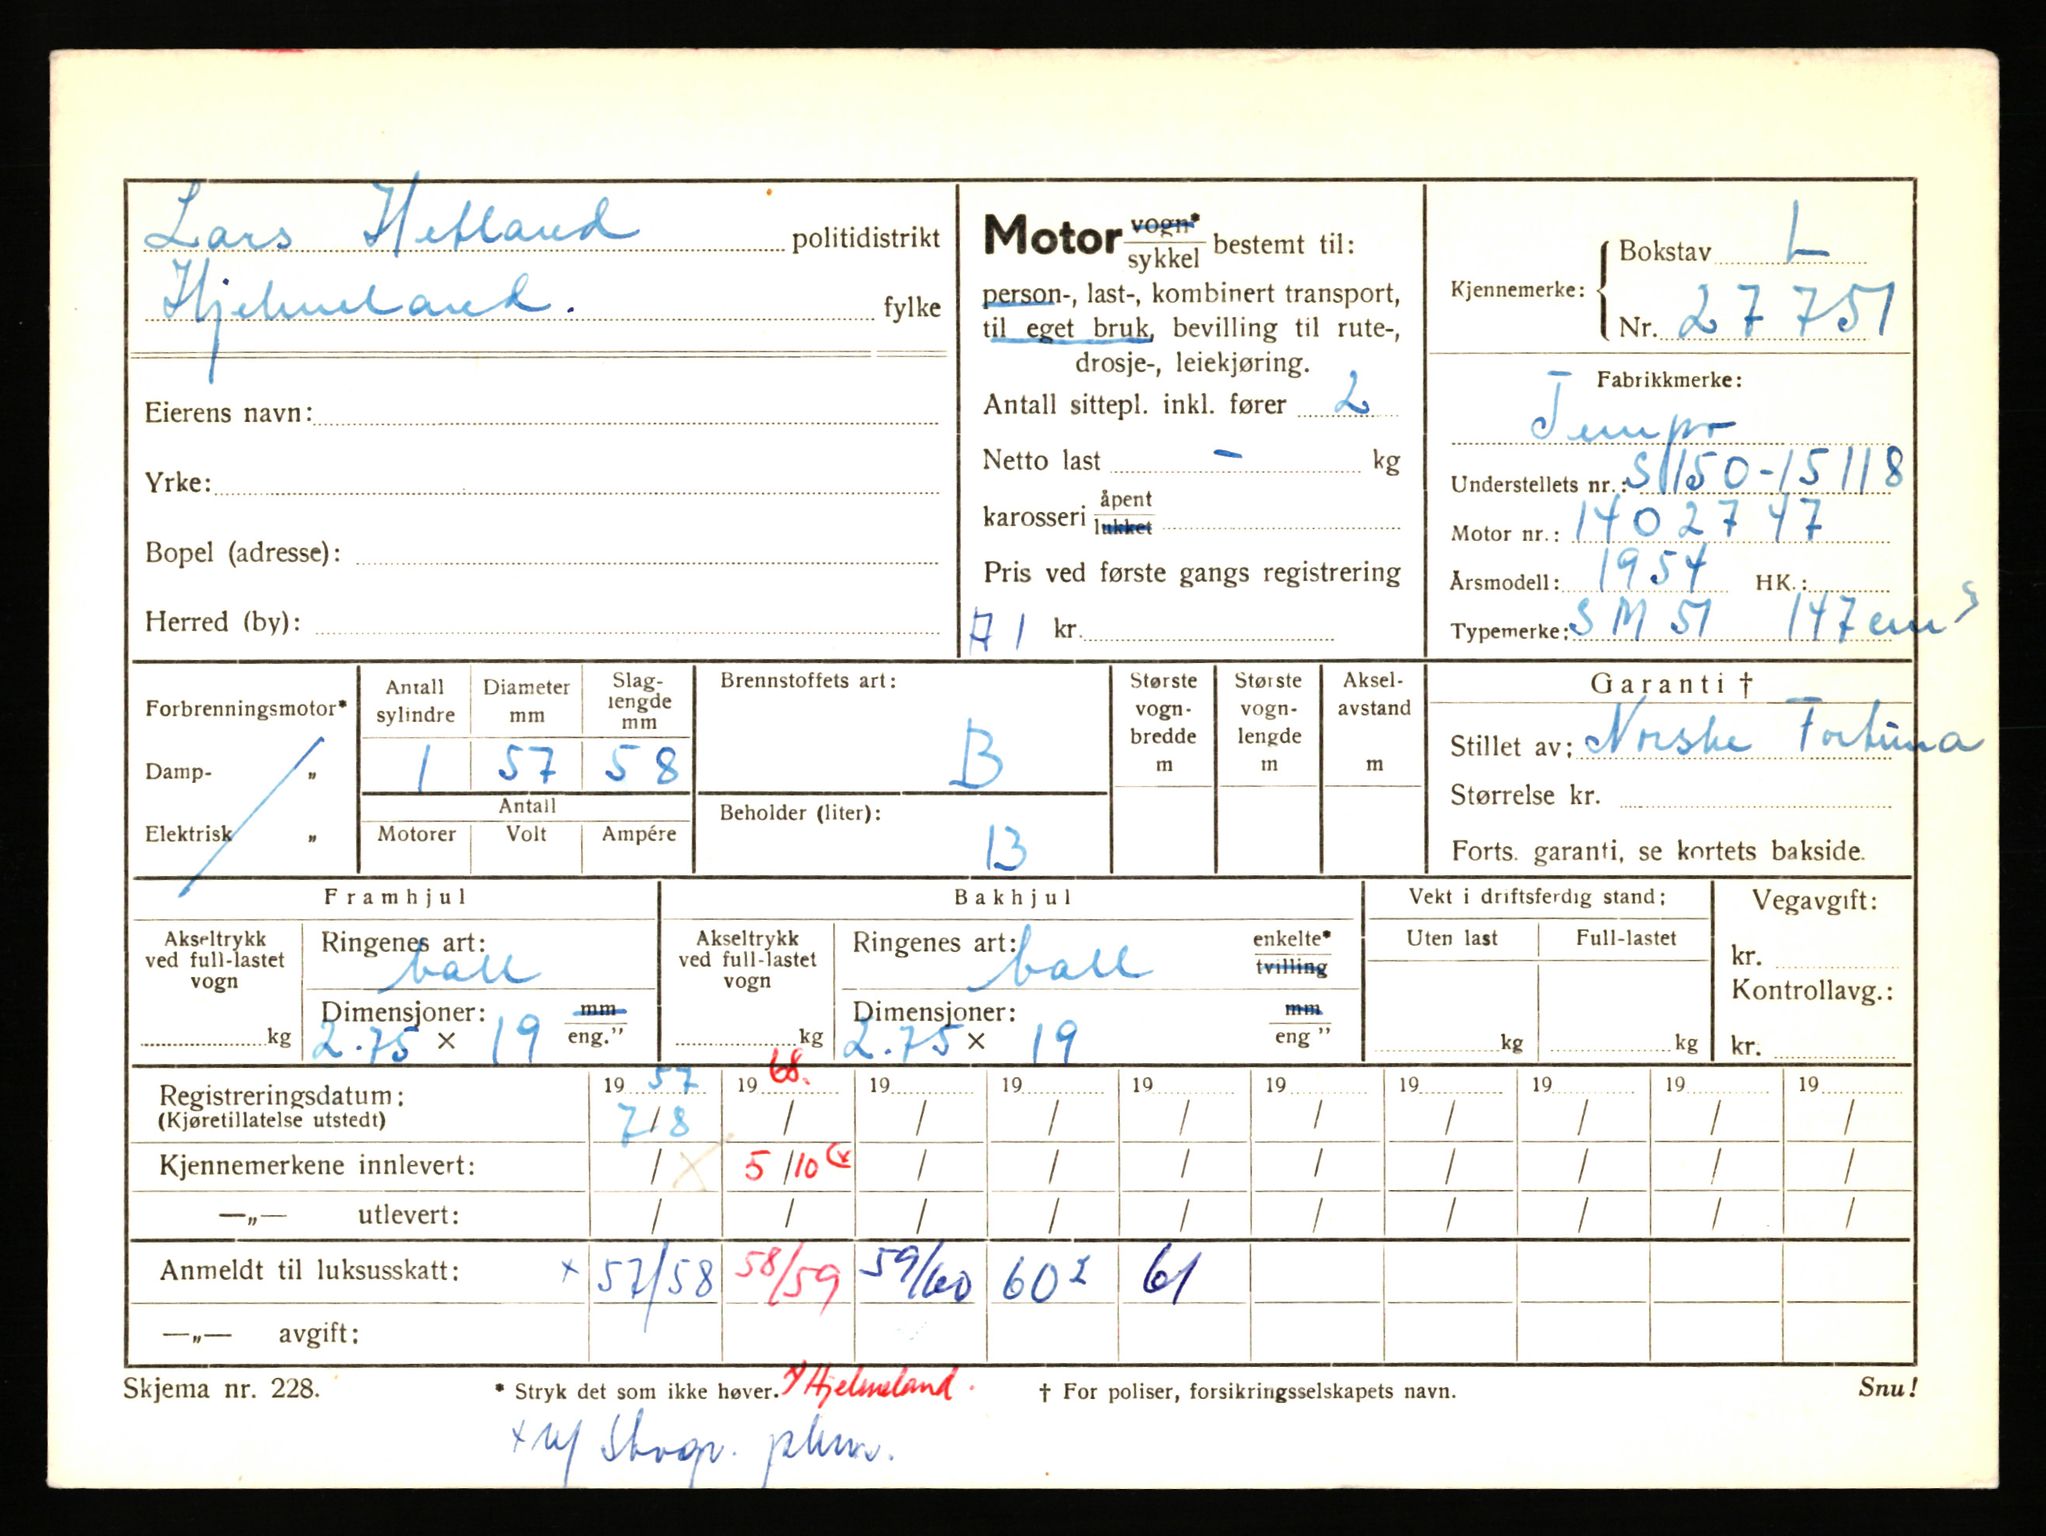 Lars Hetland politidistrikt
Hjelmeland. fylke
Eierens navn:
Yrke:
Bopel (adresse):
Herred (by):
Motor vogn* / sykkel bestemt til:
person-, last-, kombinert transport,
til eget bruk, bevilling til rute-,
drosje-, leiekjøring.
Antall sittepl. inkl. fører 2
Netto last - kg
karosseri åpent / lukket
Pris ved første gangs registrering
A 1 kr.
Kjennemerke: Bokstav L
Nr. 27751
Fabrikkmerke:
Tempo
Understellets nr.: S 150-15118
Motor nr.: 1402747
Årsmodell: 1954 HK.:
Typemerke: S M 51 147 cm³
Forbrenningsmotor*
Damp- „
Elektrisk „
Antall sylindre Diameter mm Slaglengde mm
1 57 58
Antall
Motorer Volt Ampére
Brennstoffets art:
B
Beholder (liter):
13
Største vogn-bredde m
Største vogn-lengde m
Aksel-avstand m
Garanti †
Stillet av: Norske Fortuna
Størrelse kr.
Forts. garanti, se kortets bakside.
Framhjul
Akseltrykk ved full-lastet vogn
kg
Ringenes art:
ball
Dimensjoner: mm / eng.”
2.75 × 19
Bakhjul
Akseltrykk ved full-lastet vogn
kg
Ringenes art: enkelte* / tvilling
ball
Dimensjoner: mm / eng ”
2.75 × 19
Vekt i driftsferdig stand:
Uten last Full-lastet
kg kg
Vegavgift:
kr.
Kontrollavg.:
kr.
Registreringsdatum: 19 57 19 68. 19 19 19 19 19 19 19 19
(Kjøretillatelse utstedt) 7/8 / / / / / / / / /
Kjennemerkene innlevert: / x 5/10 (x / / / / / / / /
—„— utlevert: / / / / / / / / / /
Anmeldt til luksusskatt: x 57/58 58/59 59/60 60² 61
—„— avgift:
Skjema nr. 228. * Stryk det som ikke høver. Hjelmeland. † For poliser, forsikringsselskapets navn. Snu!